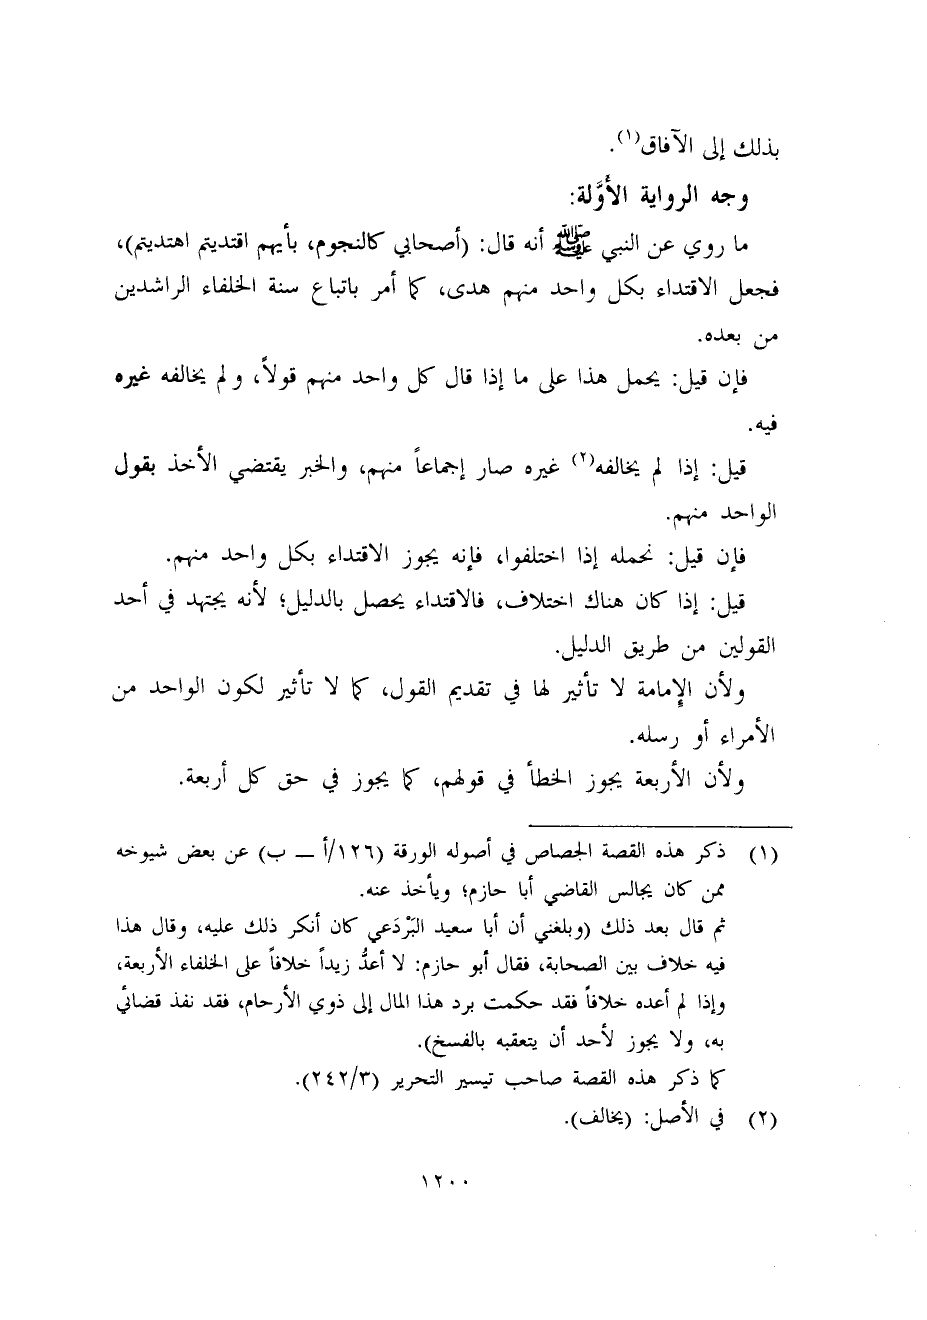 بذلك إلى الآفاق(١).
وجه الرواية الأَوَّلة:
ما روي عن النبي ﷺ أنه قال: (أصحابي كالنجوم، بأيهم اقتديتم اهتديتم)،
فجعل الاقتداء بكل واحد منهم هدى، كما أمر باتباع سنة الخلفاء الراشدين
من بعده.
فإن قيل: يحمل هذا على ما إذا قال كل واحد منهم قولاً، ولم يخالفه غيره
فيه.
قيل: إذا لم يخالفه(٢) غيره صار إجماعاً منهم، والخبر يقتضي الأخذ بقول
الواحد منهم.
فإن قيل: نحمله إذا اختلفوا، فإنه يجوز الاقتداء بكل واحد منهم.
قيل: إذا كان هناك اختلاف، فالاقتداء يحصل بالدليل؛ لأنه يجتهد في أحد
القولين من طريق الدليل.
ولأن الإمامة لا تأثير لها في تقديم القول، كما لا تأثير لكون الواحد من
الأمراء أو رسله.
ولأن الأربعة يجوز الخطأ في قولهم، كما يجوز في حق كل أربعة.
(١) ذكر هذه القصة الجصاص في أصوله الورقة (١٢٦/أ ــ ب) عن بعض شيوخه
ممن كان يجالس القاضي أبا حازم؛ ويأخذ عنه.
ثم قال بعد ذلك (وبلغني أن أبا سعيد البَرْدَعي كان أنكر ذلك عليه، وقال هذا
فيه خلاف بين الصحابة، فقال أبو حازم: لا أعدُّ زيداً خلافاً على الخلفاء الأربعة،
وإذا لم أعده خلافاً فقد حكمت برد هذا المال إلى ذوي الأرحام، فقد نفذ قضائي
به، ولا يجوز لأحد أن يتعقبه بالفسخ).
كما ذكر هذه القصة صاحب تيسير التحرير (٢٤٢/٣).
(٢) في الأصل: (يخالف).
١٢٠٠